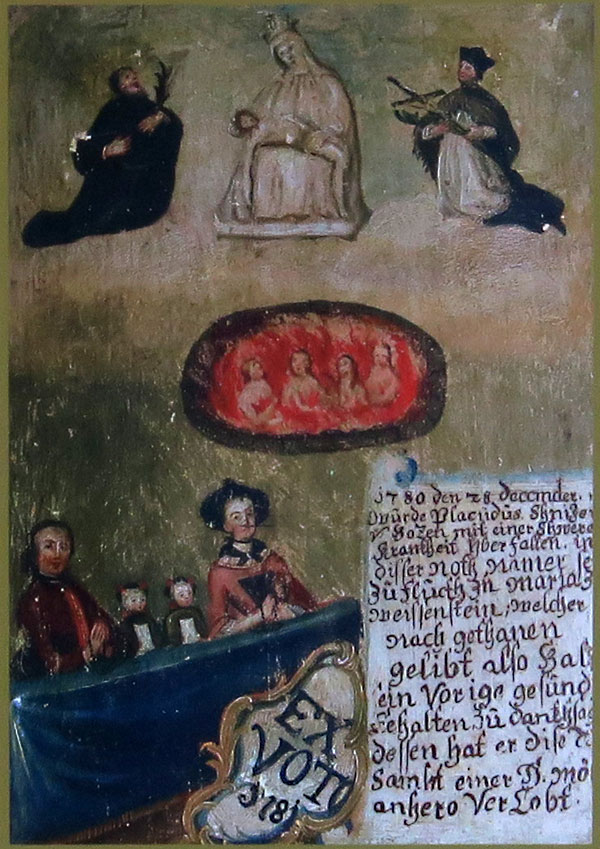 1780 den 28. december.
würde Placüdüs.
Bozen mit einer Shwere
Krankheit Yber fallen. in
disser Noth Namer se
Züflücth Zü Maria
Weissenstein; welcher
nach gethanen
gelibt also bal
ein Vorige gesünd
Erhalten Zü dankhsa
dessen hat er dise
Sambt einer H. mö
anhero VerLobt.
EX
VOTO
1781